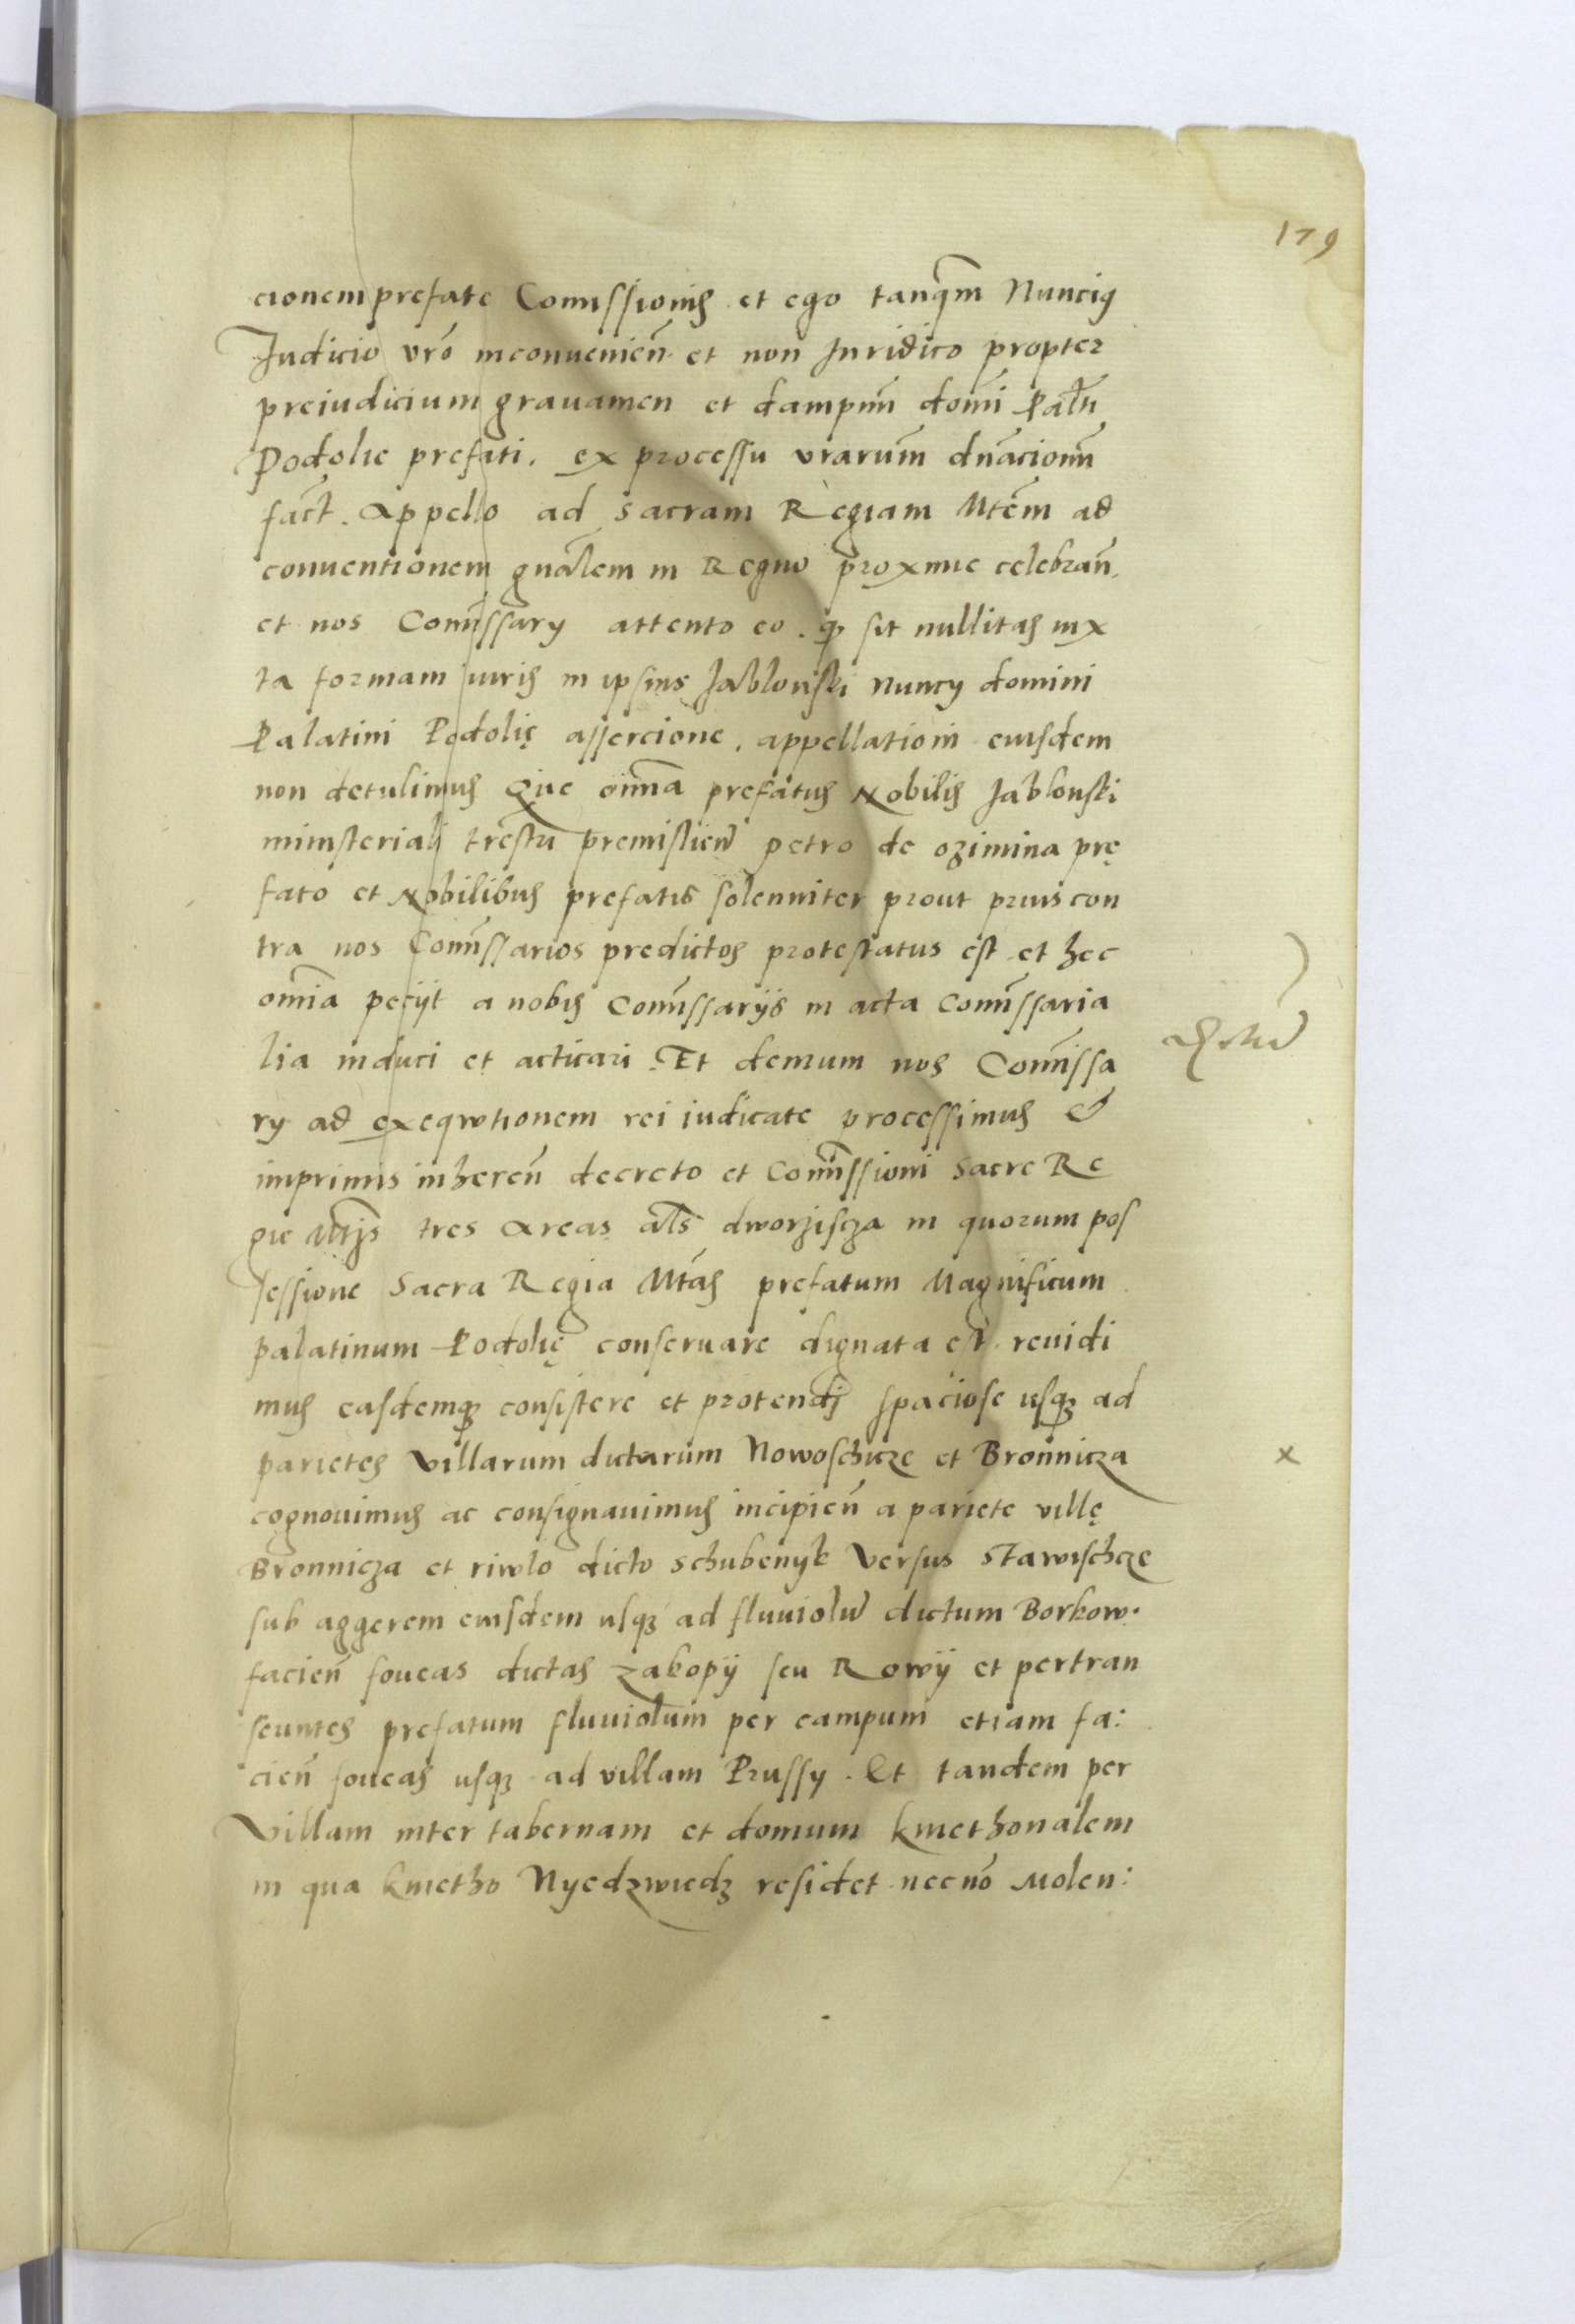 179
cionem prefate Comissionis et ego tanqm Nuncius
Judicio vro inconvenien et non Juridico propter
preiudicium gravamen et dampnm domi Palti
Podolie prefati. ex processu vrarum dnacionm
fact. Appello ad sacram Regiam Mtem ad
conventionem gnalem in Regno proxime celebran.
et nos Comissary attento eo. q sit nullitas iux
ta formam iuris in ipsius Jablonski nuncy domini
Palatini Podolię assercione. appellationi eiusdem
non detulimus Que omnia prefatus Nobilis Jablonski
ministeriali trestri premislien petro de ozimina prę
fato et Nobilibus prefatis solenniter prout prius con
tra nos Comissarios predictos protestatus est et hec
omnia pecijt a nobis Comissarijs in acta Comissaria
lia induci et acticari. Et demum nos Comissa
ry ad exeqwtionem rei iudicate processimus &
imprimis inheren decreto et Comissioni Sacre Re
gie Mtis tres Areas als dworziscza in quorum pos
sessione Sacra Regia Mtas prefatum Magnificum
palatinum Podolię conservare dignata est. revidi
mus easdemq consistere et protendj spaciose usq ad
parietes villarum dictarum Nowoschicze et Bronnicza
x
cognovimus ac consignavimus incipien a pariete villę
Bronnicza et riwlo dicto schubenyk versus Stawischcze
sub aggerem eiusdem usq ad fluviolu dictum Borkow.
facien foveas dictas zakopij seu Rowij et pertran
seuntes prefatum fluviolum per campum etiam fa:
cien foveas usq ad villam Prussy. Et tandem per
villam inter tabernam et domum kmethonalem
in qua kmetho Nyedzwiedz residet necno Molen: